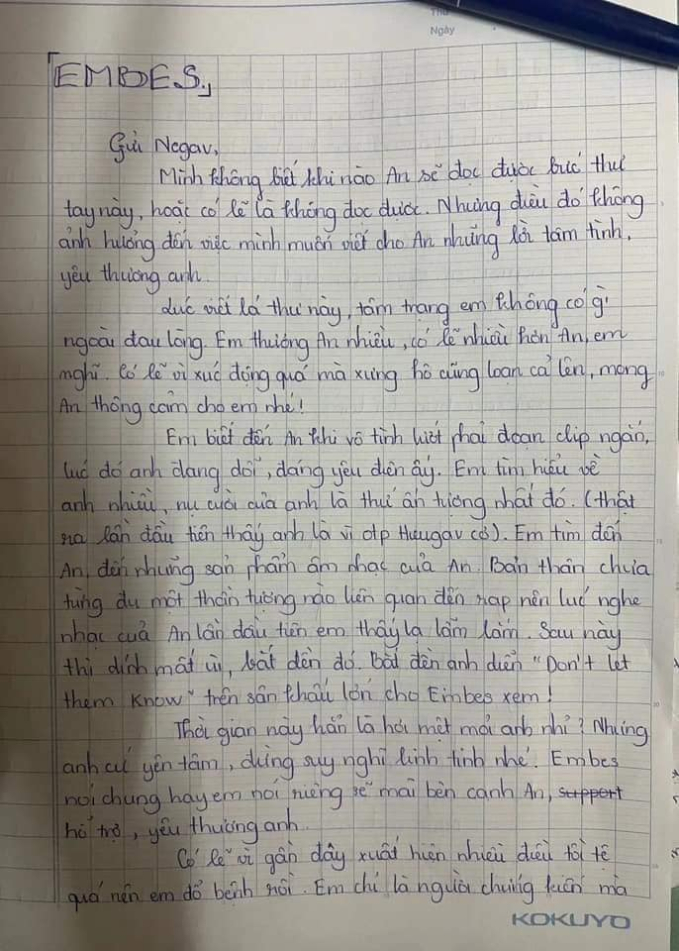 Thứ
Ngày
「EMBES」
Gửi Negav,
Mình không biết khi nào An sẽ đọc được bức thư
tay này, hoặc có lẽ là không đọc được. Nhưng điều đó không
ảnh hưởng đến việc mình muốn viết cho An những lời tâm tình,
yêu thương anh.
Lúc viết lá thư này, tâm trạng em không có gì
ngoài đau lòng. Em thương An nhiều, có lẽ nhiều hơn An, em
nghĩ. Có lẽ vì xúc động quá mà xưng hô cũng loạn cả lên, mong
An thông cảm cho em nhé!
Em biết đến An khi vô tình lướt phải đoạn clip ngắn,
lúc đó anh đang dỗi, đáng yêu điên ấy. Em tìm hiểu về
anh nhiều, nụ cười của anh là thứ ấn tượng nhất đó. (thật
ra lần đầu tiên thấy anh là vì otp Hieugav cơ). Em tìm đến
An, đến những sản phẩm âm nhạc của An. Bản thân chưa
từng đu một thần tượng nào liên quan đến rap nên lúc nghe
nhạc của An lần đầu tiên em thấy lạ lắm lắm. Sau này
thì dính mất ùi, bắt đền đó. Bắt đền anh diễn "Don't let
them know" trên sân khấu lớn cho Embes xem!
Thời gian này hẳn là hơi mệt mỏi anh nhỉ? Nhưng
anh cứ yên tâm, đừng suy nghĩ linh tinh nhé. Embes
nói chung hay em nói riêng sẽ mãi bên cạnh An, support
hỗ trợ, yêu thương anh.
Có lẽ vì gần đây xuất hiện nhiều điều tồi tệ
quá nên em đổ bệnh rồi. Em chỉ là người chứng kiến mà
KOKUYO